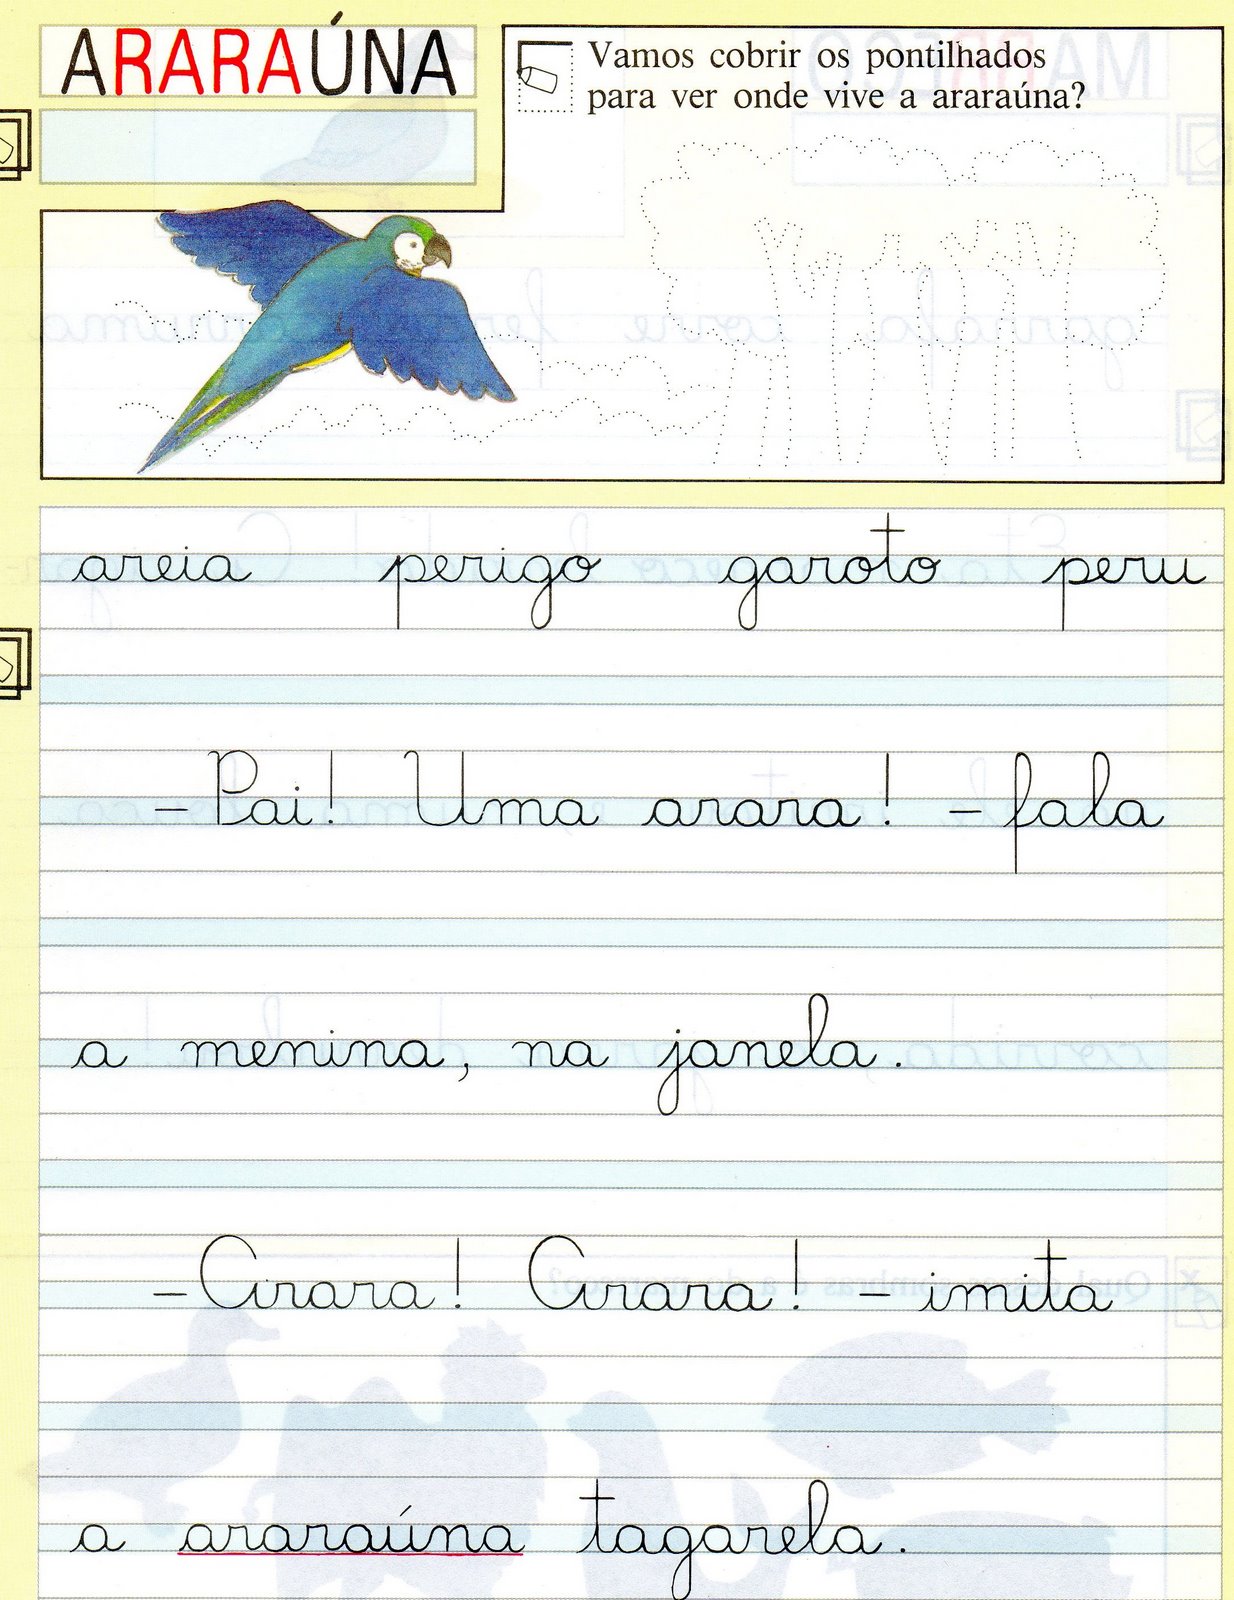 ARARAÚNA
Vamos cobrir os pontilhados
para ver onde vive a araraúna?
areia perigo garoto peru
– Pai! Uma arara! – fala
a menina, na janela.
– Arara! Arara! – imita
a araraúna tagarela.